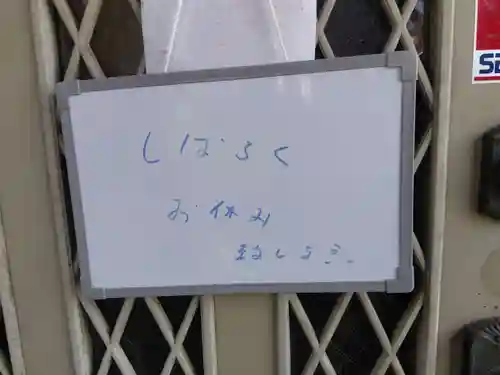 しばらく
お休み
致します。
SE